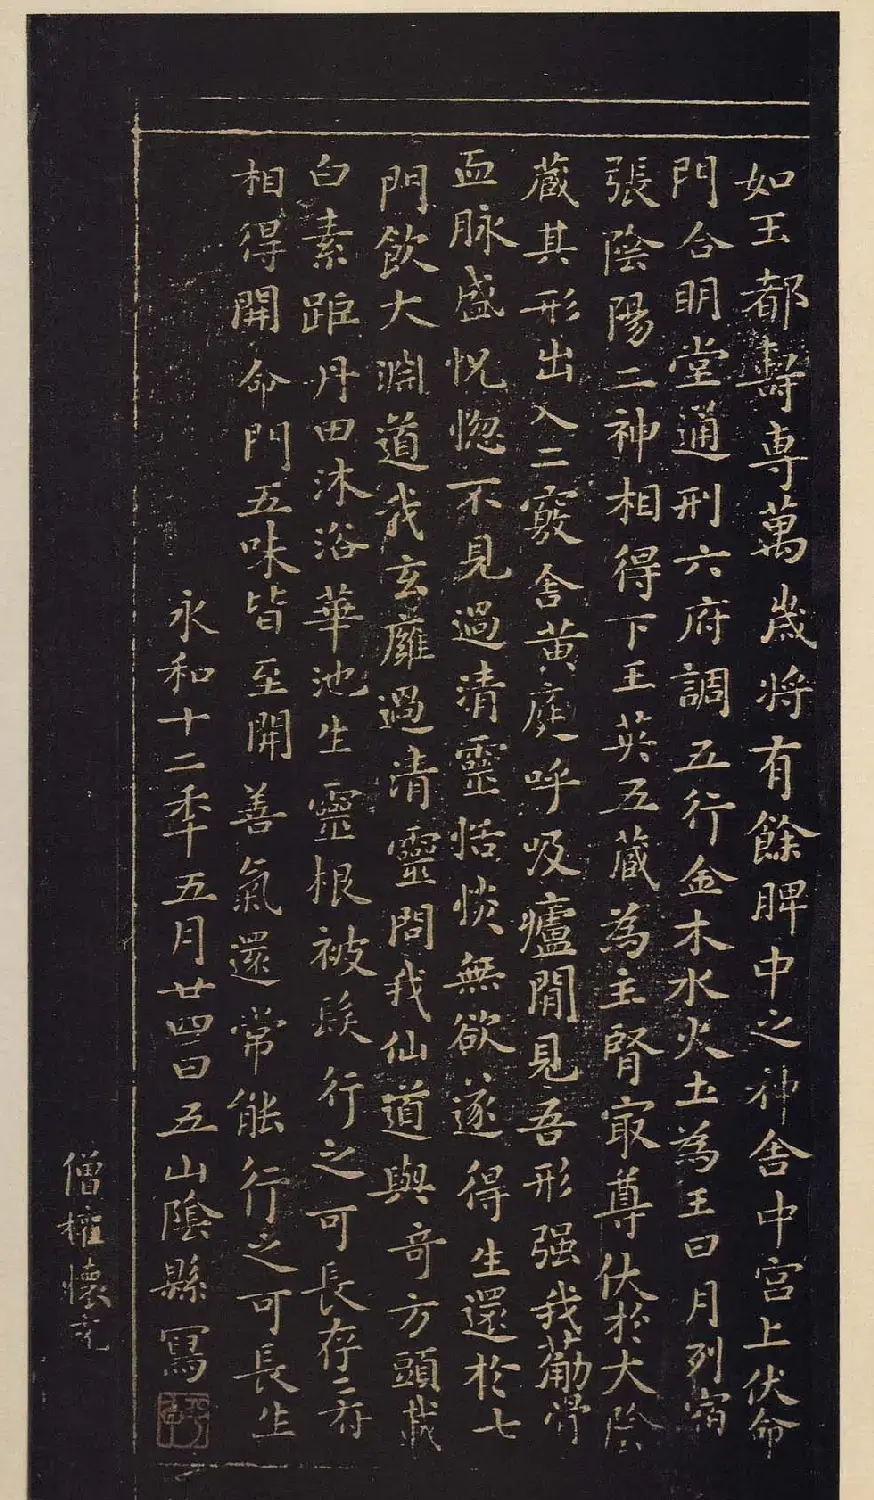 如玉都壽專萬歲將有餘脾中之神舍中宮上伏命
門合明堂通利六府調五行金木水火土為王日月列宿
張陰陽二神相得下玉英五藏為主腎最尊伏於大陰
藏其形出入二竅舍黃庭呼吸廬間見吾形强我筋骨
血脉盛恍惚不見過清靈恬惔無欲遂得生還於七
門飲大淵道我玄廱過清靈問我仙道與奇方頭載
白素距丹田沐浴華池生靈根被髮行之可長存二府
相得開命門五味皆至開善氣還常能行之可長生
永和十二年五月廿四日五山陰縣寫
僧權懷充